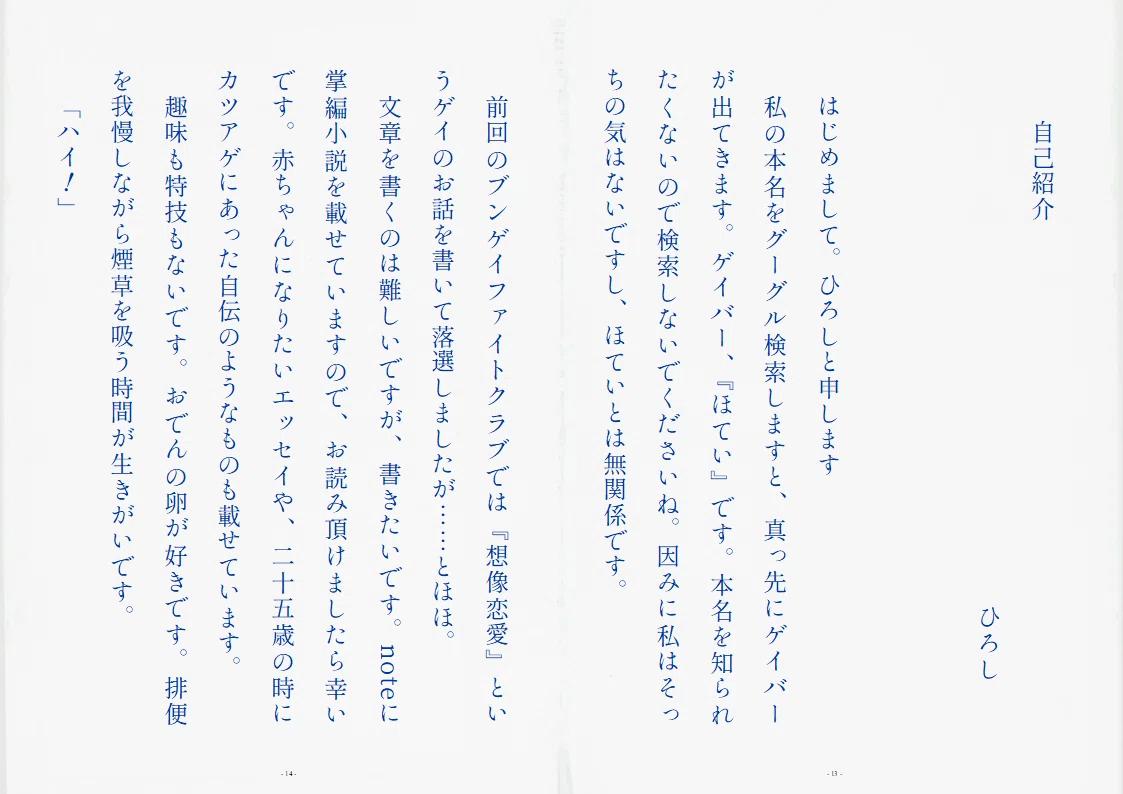 自己紹介
ひろし
はじめまして。ひろしと申します
私の本名をグーグル検索しますと、真っ先にゲイバー
が出てきます。ゲイバー、『ほてい』です。本名を知られ
たくないので検索しないでくださいね。因みに私はそっ
ちの気はないですし、ほていとは無関係です。
- 13 -
前回のブンゲイファイトクラブでは『想像恋愛』とい
うゲイのお話を書いて落選しましたが……とほほ。
文章を書くのは難しいですが、書きたいです。noteに
掌編小説を載せていますので、お読み頂けましたら幸い
です。赤ちゃんになりたいエッセイや、二十五歳の時に
カツアゲにあった自伝のようなものも載せています。
趣味も特技もないです。おでんの卵が好きです。排便
を我慢しながら煙草を吸う時間が生きがいです。
「ハイ！」
- 14 -